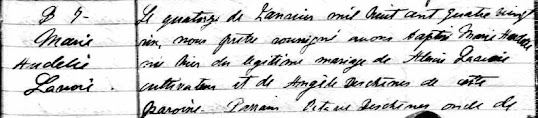 B 7
Marie
Audelie
Lavoie.
Le quatorze de Janvier mil huit cent quatre vingt
six, nous prêtre soussigné avons baptisé Marie Audelie
née hier du légitime mariage de Alexis Lavoie
cultivateur et de Angèle Deschenes de cette
paroisse. Parrain Octave Deschenes oncle de